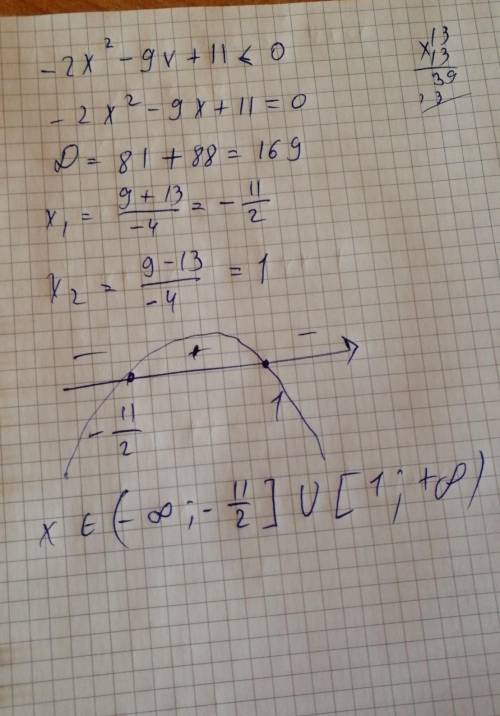 -2x² - 9x + 11 < 0
-2x² - 9x + 11 = 0
D = 81 + 88 = 169
x₁ = (9 + 13)/(-4) = -11/2
x₂ = (9 - 13)/(-4) = 1
- + -
-11/2 1
x ∈ (-∞; -11/2] ∪ [1; +∞)
x 13
13
39
13